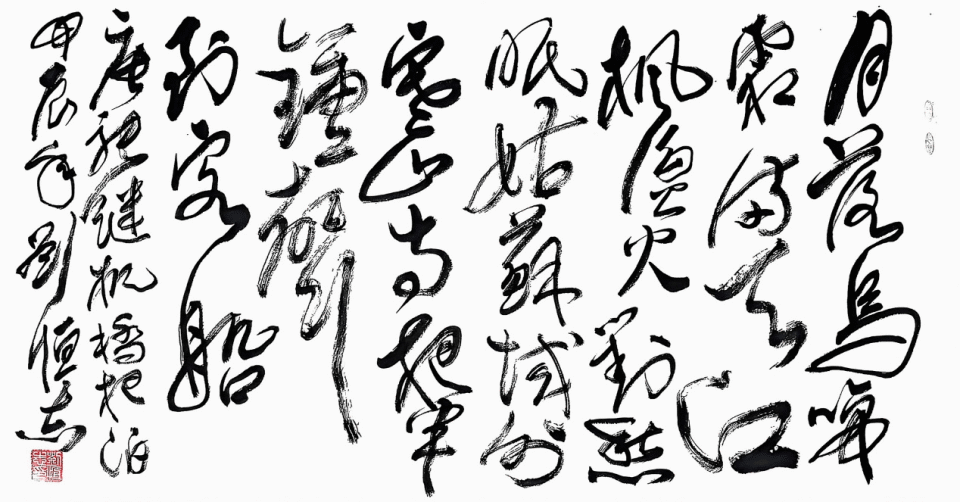 月落烏啼
霜滿天江
枫渔火對愁
眠姑蘇城外
寒山寺夜半
鐘聲
到客船
唐张继枫橋夜泊
甲辰年劉恒志